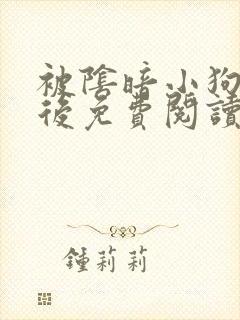 被陰暗小狗
後免費閱讀
鍾莉莉